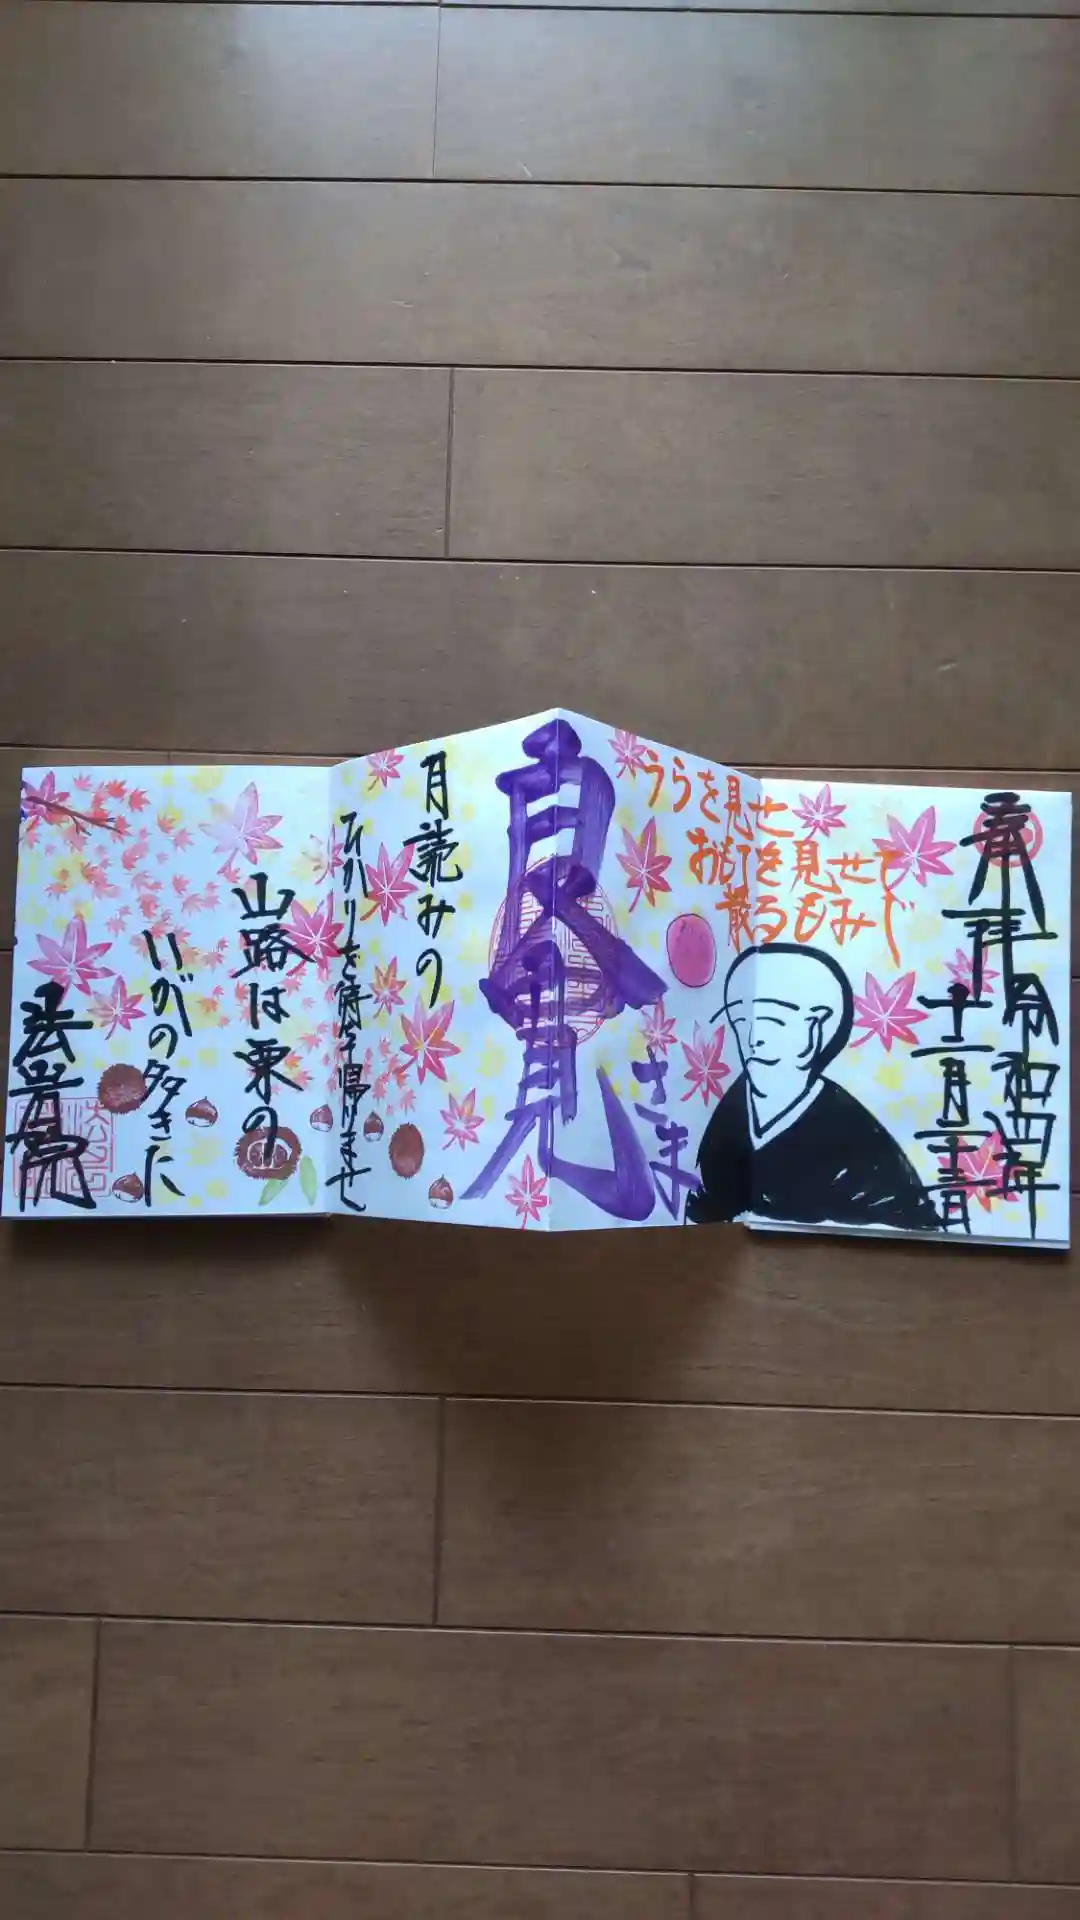 奉拝
令和四年
十一月二十三日
うらを見せ
おもてを見せて
散るもみじ
良寛さま
月読みの
ひかりを待ちて帰りませ
山路は栗の
いがの多きに
法岩院